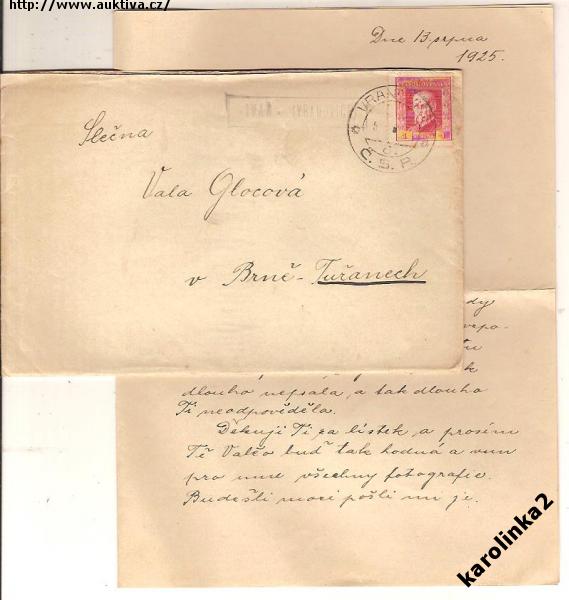 http://www.auktiva.cz/
Dne 13. srpna
1925.
VRANOV
Č. S. R.
Slečna
Vala Glocová
v Brně-Tuřanech
dlouho nepsala, a tak dlouho
Ti neodpověděla.
Děkuji Ti za lístek a prosím
Tě Valčo buď tak hodná a
pro mne všechny fotografie.
Budeš-li moci pošli mi je.
karolinka2